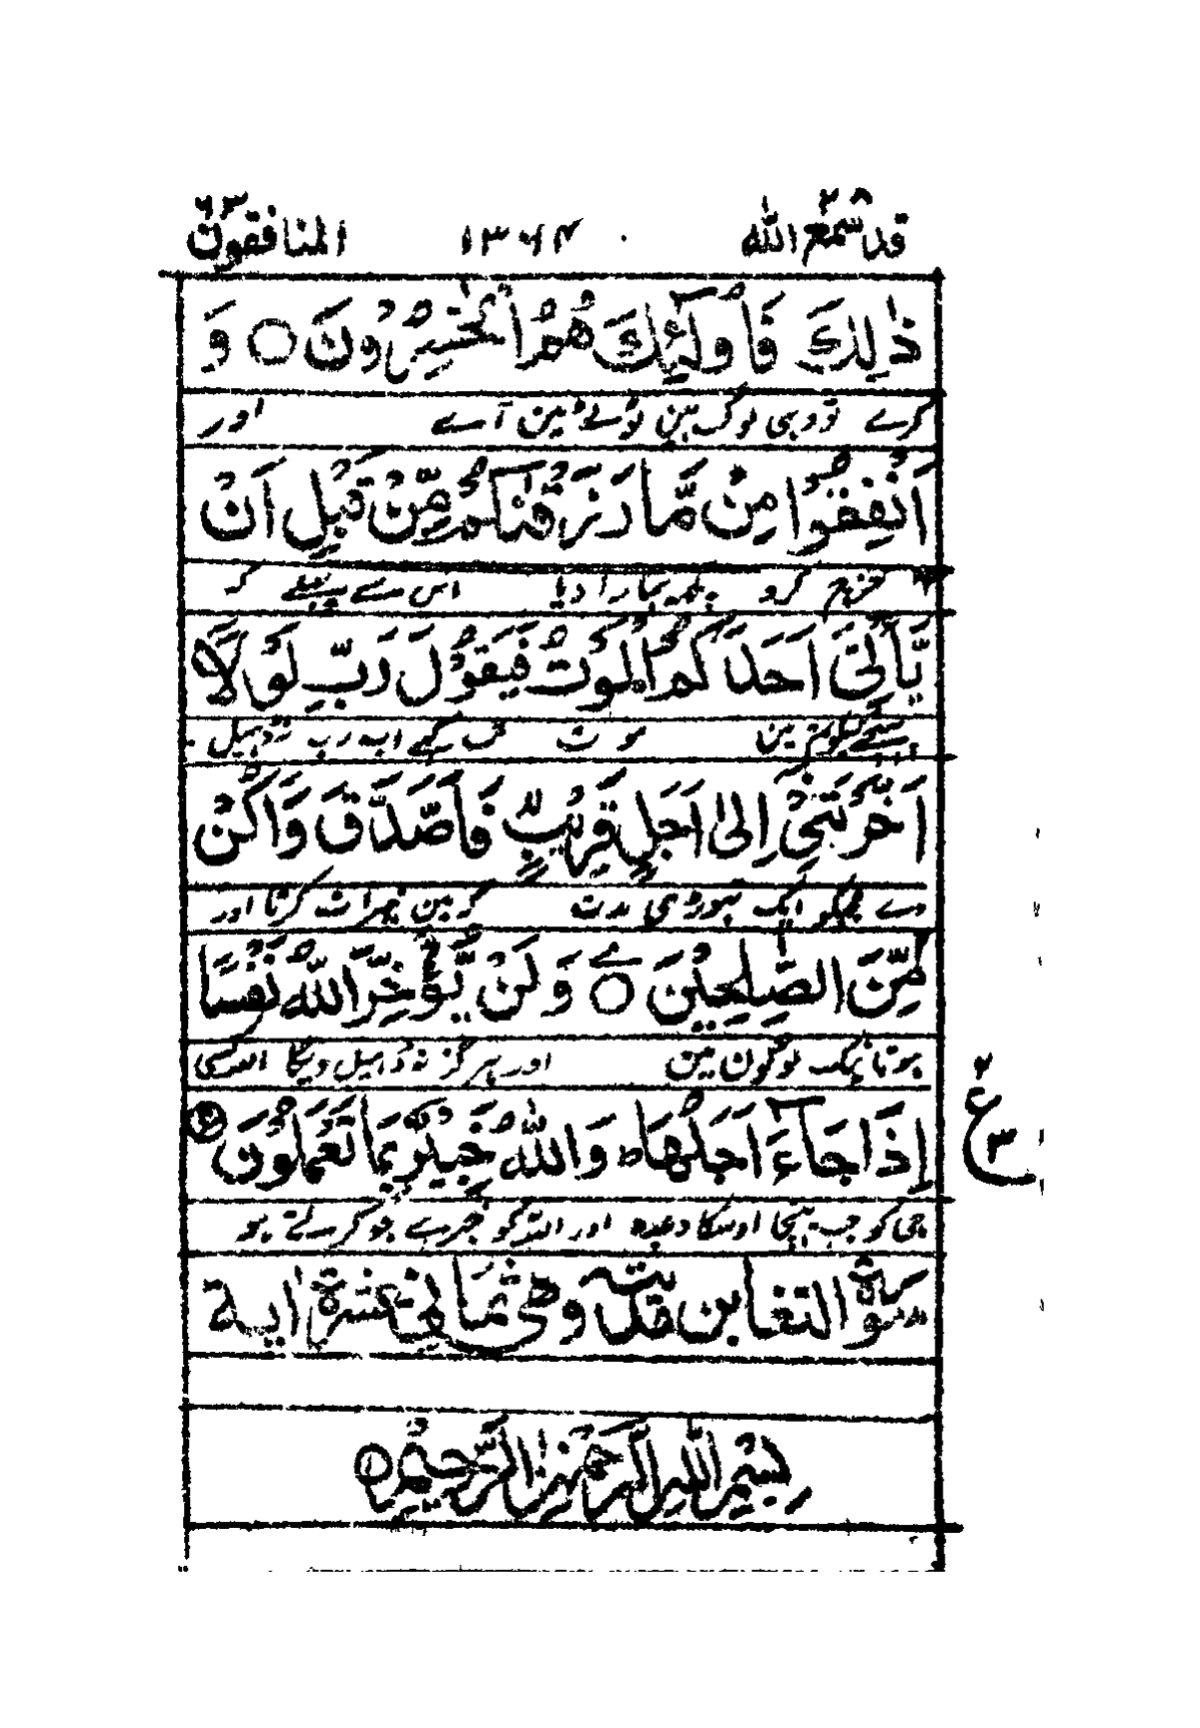 قد سمع الله ٢٨ ١٣٦٤ المنافقون ٦٣
ذٰلِكَ فَاُولٰٓئِكَ هُمُ الْخٰسِرُوْنَ ○ وَ
کرے تو وہی لوگ ہین ٹوٹے مین آے اور
اَنْفِقُوْا مِنْ مَّا رَزَقْنٰكُمْ مِّنْ قَبْلِ اَنْ
خرچ کرو ہمارا دیا اس سے پہلے کہ
يَّاْتِىَ اَحَدَكُمُ الْمَوْتُ فَيَقُوْلَ رَبِّ لَوْ لَآ
مین موت تب کہے اے رب نہ ڈہیل
اَخَّرْتَنِىْٓ اِلٰٓى اَجَلٍ قَرِيْبٍ فَاَصَّدَّقَ وَاَكُنْ
دے مجکو ایک تہوڑی مدت کہ مین خیرات کرتا اور
مِّنَ الصّٰلِحِيْنَ ○ وَلَنْ يُّؤَخِّرَ اللّٰهُ نَفْسًا
ہوتا نیک لوگون مین اور ہرگز نہ ڈہیل دیگا اللہ کسی
اِذَا جَآءَ اَجَلُهَا ط وَاللّٰهُ خَبِيْرٌ بِمَا تَعْمَلُوْنَ
٢ ع ٣
جی کو جب پہنچا اوسکا وعدہ اور اللہ کو خبر ہے جو کرتے ہو
سورة التغابن مدنية وهى ثمانى عشرة اية
بِسْمِ اللّٰهِ الرَّحْمٰنِ الرَّحِيْمِ ○